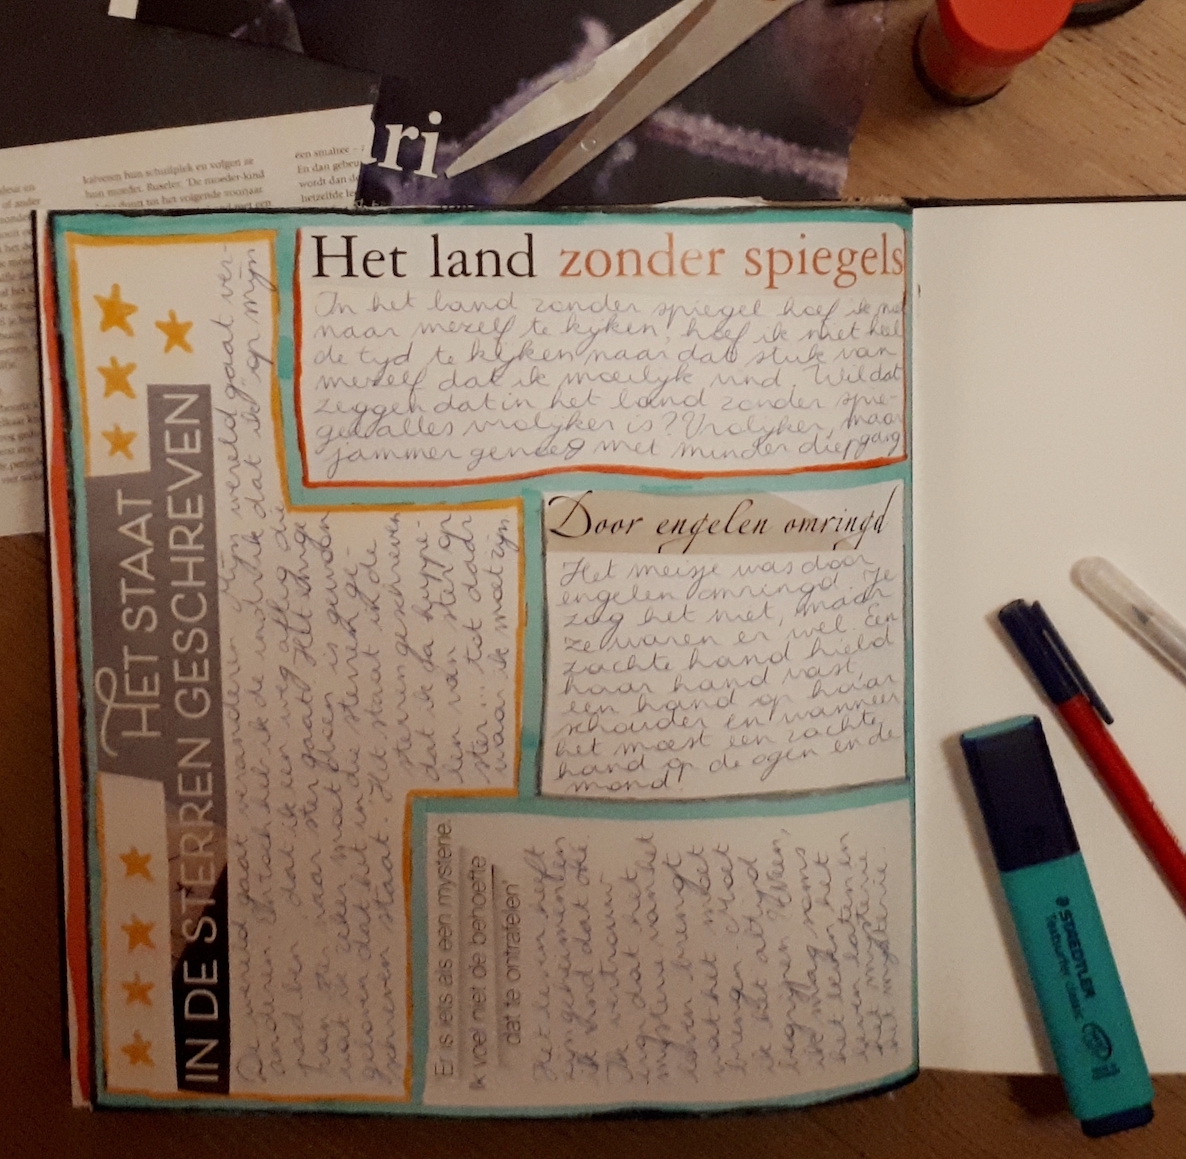 ri
kalveren hun schuilplek en volgen ze
hun moeder. Ruseler. 'De moeder-kind
het volgende voorjaar
een smaltee
En dan gebeu
wordt dan de
hetzelfde
Het land zonder spiegels
In het land zonder spiegel hoef ik
naar mezelf te kijken, hoef ik niet heel
de tijd te kijken naar dat stuk van
mezelf dat ik moeilijk vind. Wil dat
zeggen dat in het land zonder spie-
gel alles vrolijker is? Vrolijker, maar
jammer genoeg met minder diepgang
HET STAAT
IN DE STERREN GESCHREVEN
De wereld gaat veranderen. Mijn wereld gaat ver-
anderen. ik de indruk dat ik op mijn
pad ben dat ik een weg afleg die
van ster naar ster gaat. Het enige
wat ik zeker moet doen is gewoon
geloven dat het in de sterren ge-
schreven staat. Het staat in de
sterren geschreven
dat ik ga huppe-
len van ster op
ster... tot daar
waar ik moet zijn
Door engelen omringd
Het meisje was door
engelen omringd. Je
zag het niet, maar
ze waren er wel. Een
zachte hand hield
haar hand vast,
een hand op haar
schouder en wanneer
het moest een zachte
hand op de ogen en de
mond!
Er is iets als een mysterie.
Ik voel niet de behoefte
dat te ontrafelen"
Het leven heeft
zijn geheimen en
ik vind dat oké.
Ik vertrouw
erop dat het
mysterie van het
leven brengt
wat het moet
brengen. Moet
ik het altijd
begrijpen? Neen,
ik mag soms
het leven laten in
het mysterie
STAEDTLER
Textsurfer classic